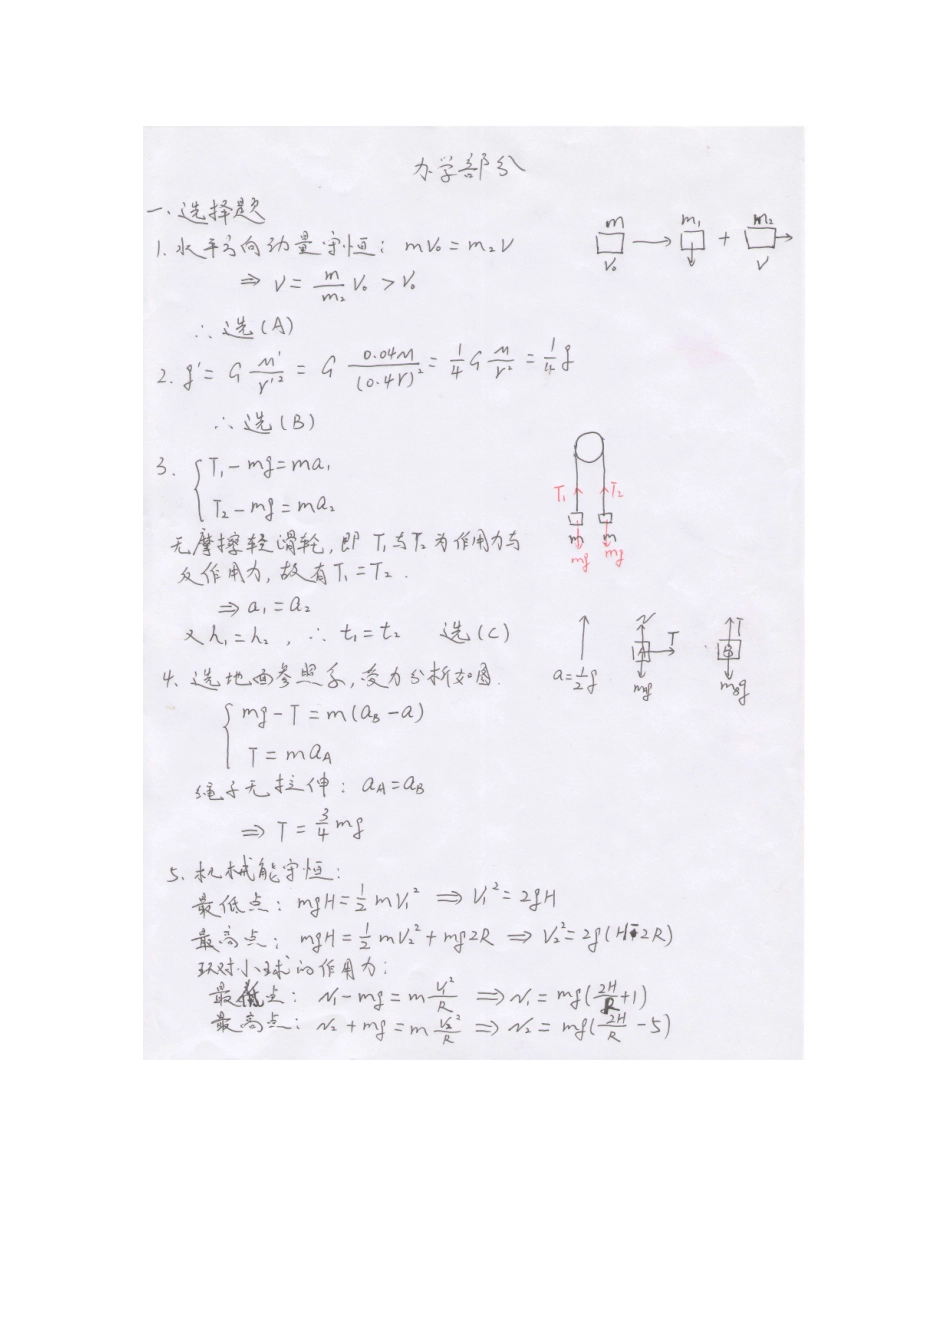 力学部分
一、选择题
1. 水平方向动量守恒: mV₀ = m₂V
⇒ V = m/m₂ V₀ > V₀
∴ 选(A)
m → m₁ + m₂
V₀ V
2. g' = G M'/r'² = G 0.04M/(0.4r)² = 1/4 G M/r² = 1/4 g
∴ 选(B)
3. { T₁ - mg = ma₁
T₂ - mg = ma₂
无摩擦轻滑轮, 即 T₁与T₂为作用力与
反作用力, 故有T₁ = T₂.
⇒ a₁ = a₂
又h₁ = h₂, ∴ t₁ = t₂ 选(C)
T₁ T₂
m m
mg mg
4. 选地面参照系, 受力分析如图.
{ mg - T = m(a_B - a)
T = ma_A
绳子无拉伸: a_A = a_B
⇒ T = 3/4 mg
a = 1/2 g
N A T mg
T B m_Bg
5. 机械能守恒:
最低点: mgH = 1/2 mV₁² ⇒ V₁² = 2gH
最高点: mgH = 1/2 mV₂² + mg2R ⇒ V₂² = 2g(H-2R)
环对小球的作用力:
最低点: N₁ - mg = m V₁²/R ⇒ N₁ = mg(2H/R + 1)
最高点: N₂ + mg = m V₂²/R ⇒ N₂ = mg(2H/R - 5)